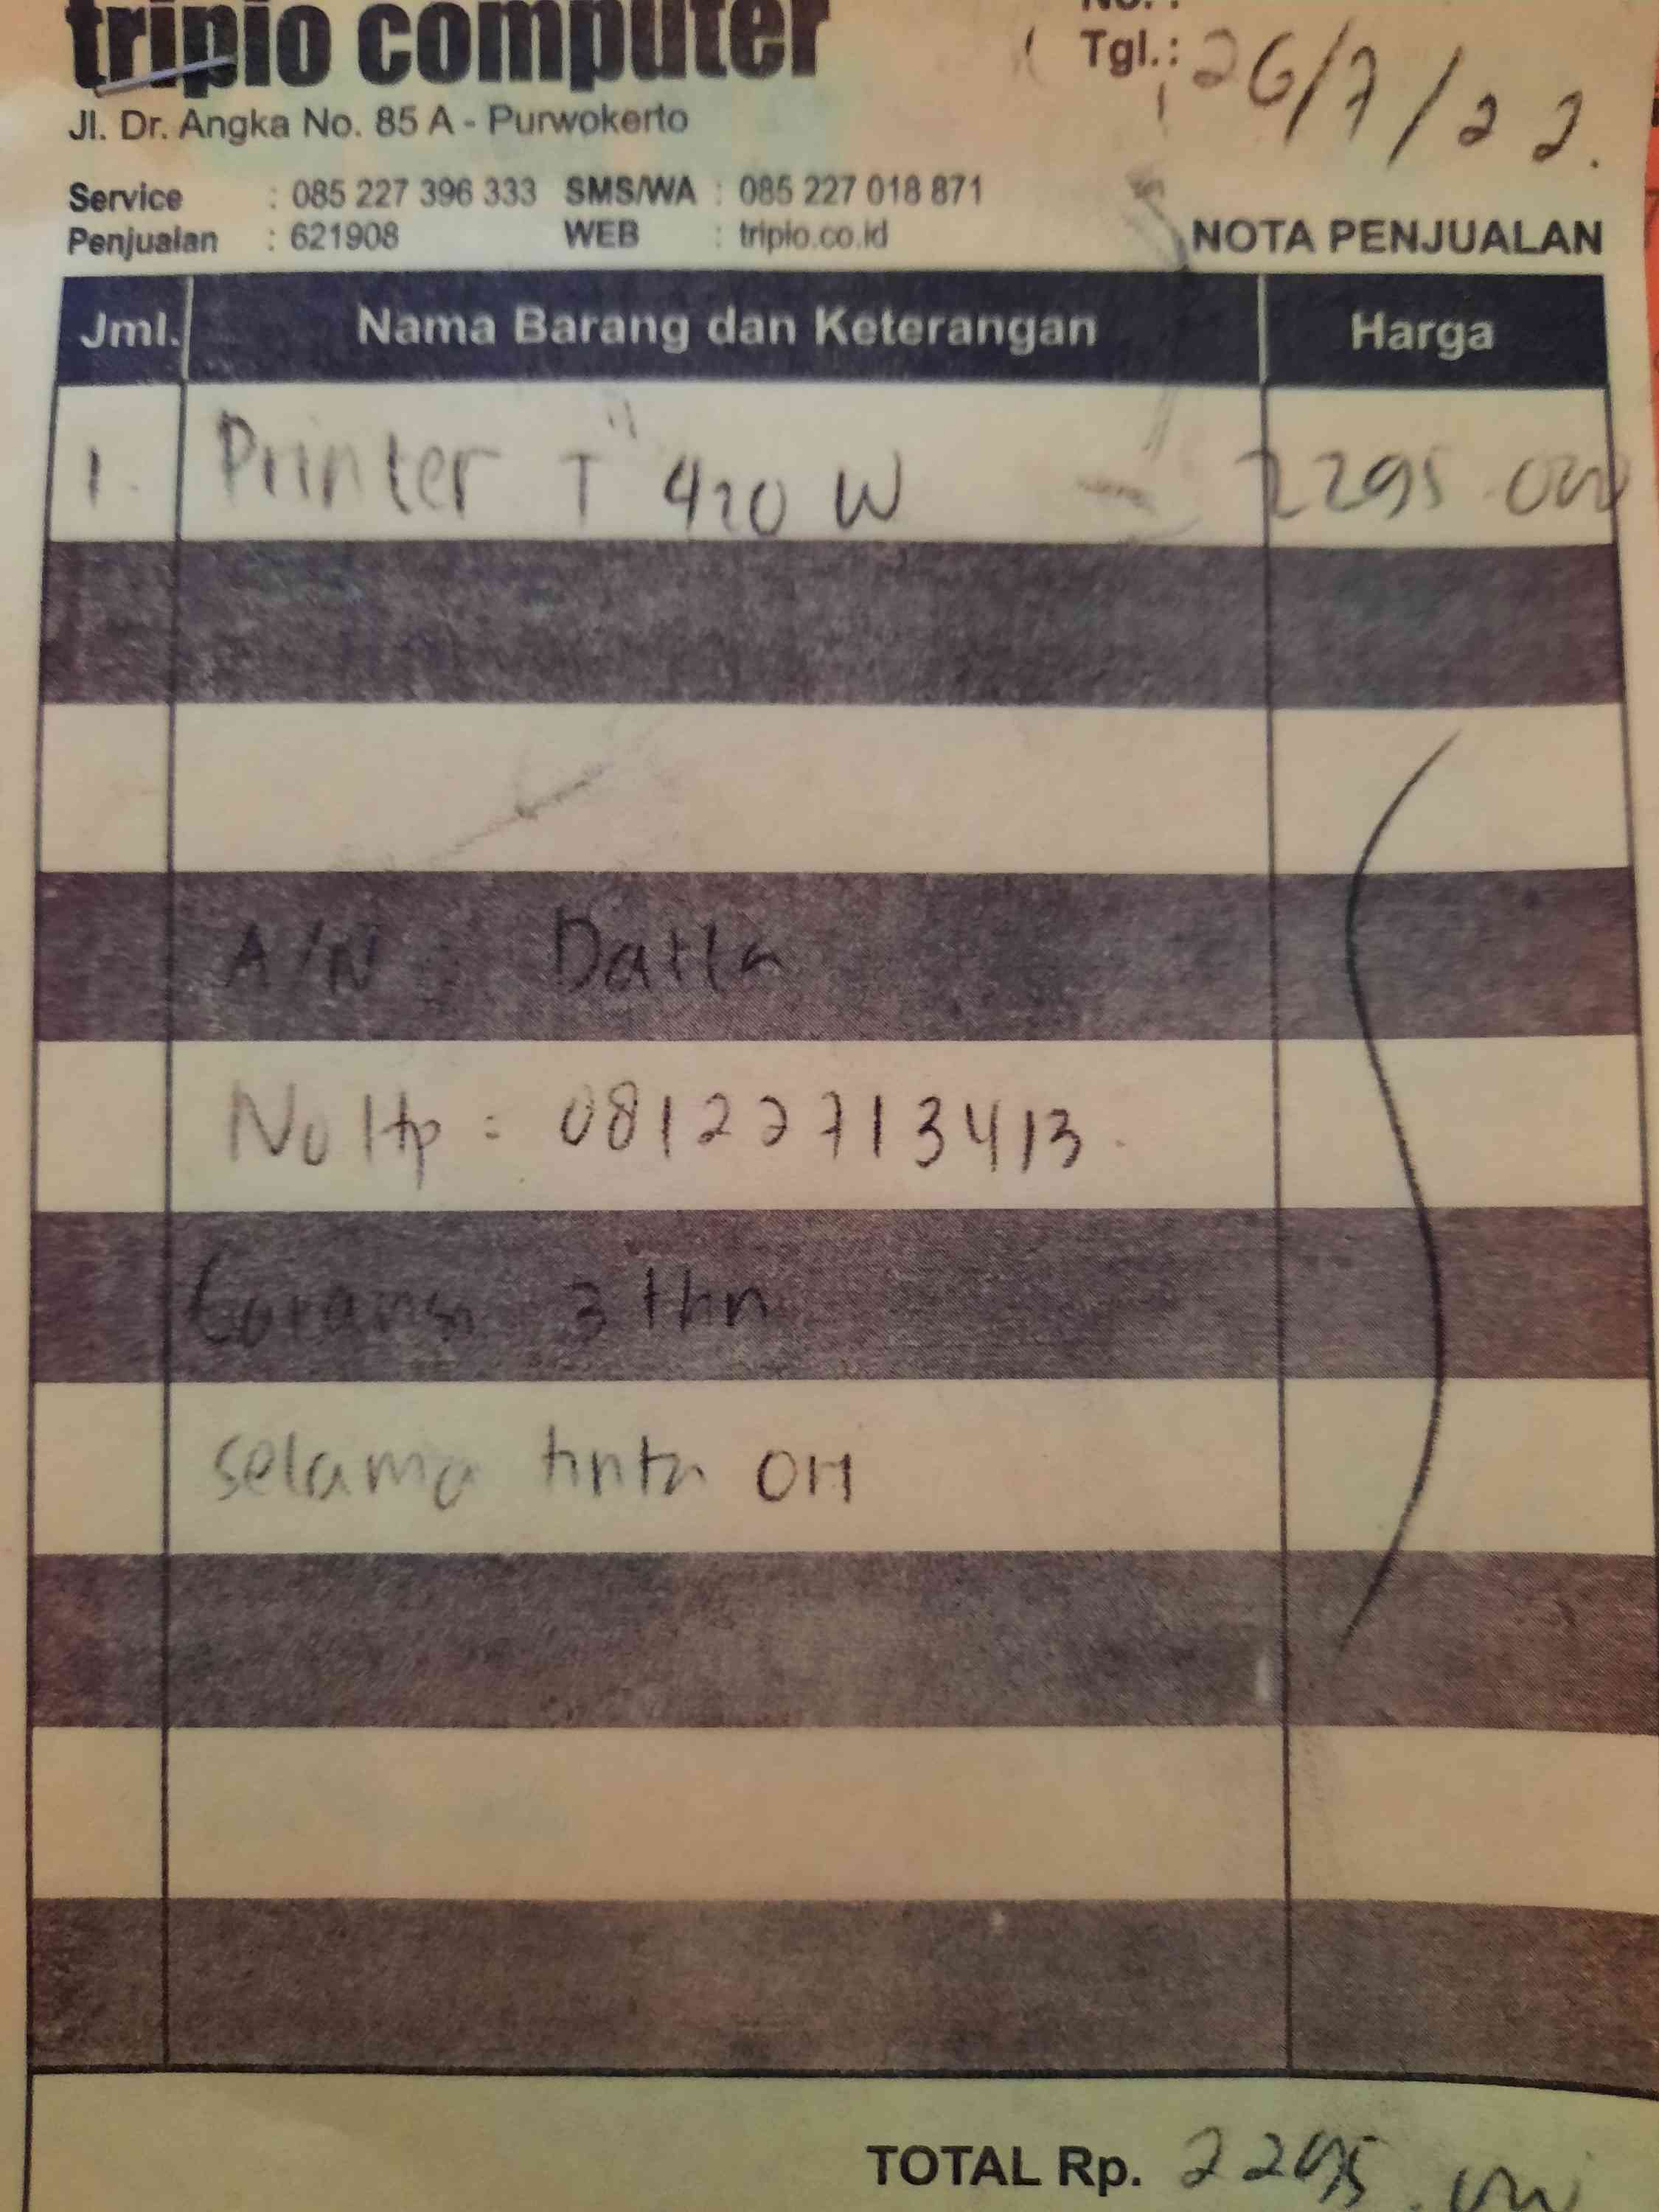 tripio computer
No. :
Tgl.: 26/7/22.
Jl. Dr. Angka No. 85 A - Purwokerto
Service : 085 227 396 333 SMS/WA : 085 227 018 871
Penjualan : 621908 WEB : tripio.co.id
NOTA PENJUALAN
Jml. Nama Barang dan Keterangan Harga
1. Printer T 420 W 2295.000
A/N :
No Hp : 081227713413.
Garansi 3 thn
selama tinta ori
TOTAL Rp. 2295.000